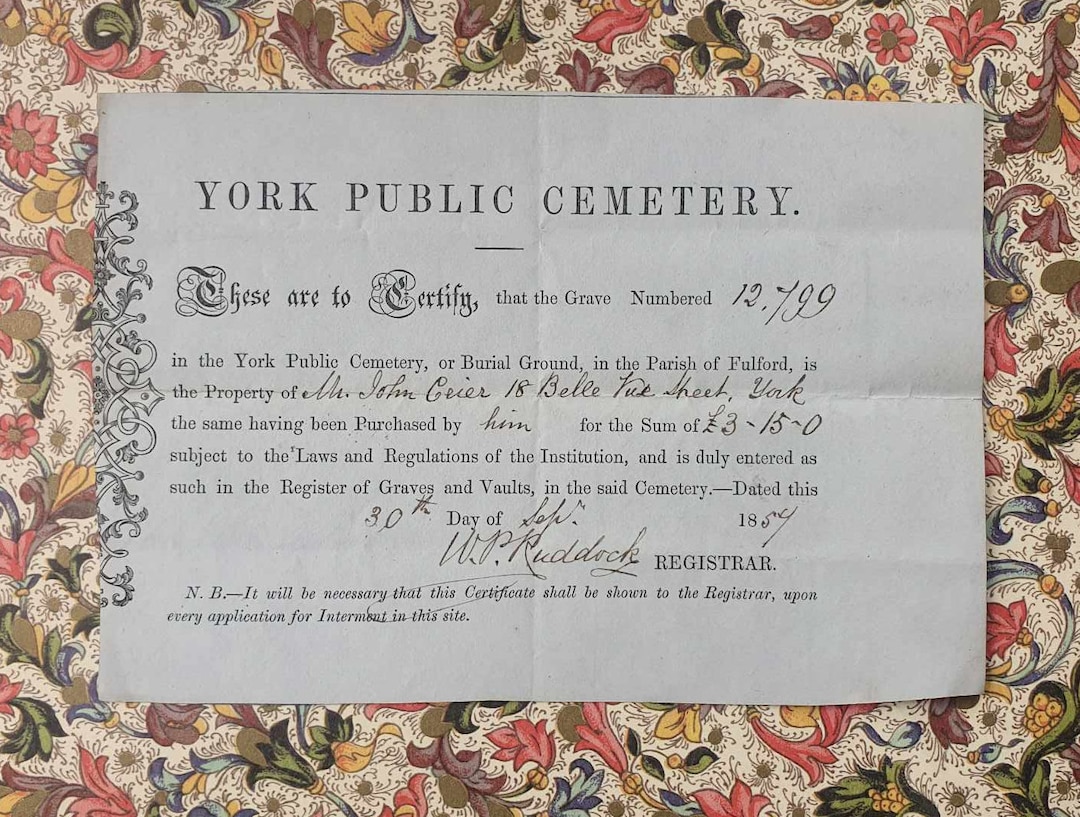 YORK PUBLIC CEMETERY.
These are to Certify, that the Grave Numbered 12,799
in the York Public Cemetery, or Burial Ground, in the Parish of Fulford, is
the Property of Mr. John 18 Belle Vue Street, York
the same having been Purchased by him for the Sum of £3-15-0
subject to the Laws and Regulations of the Institution, and is duly entered as
such in the Register of Graves and Vaults, in the said Cemetery.—Dated this
30th Day of Sepr. 1854
W. P. Ruddock REGISTRAR.
N. B.—It will be necessary that this Certificate shall be shown to the Registrar, upon
every application for Interment in this site.